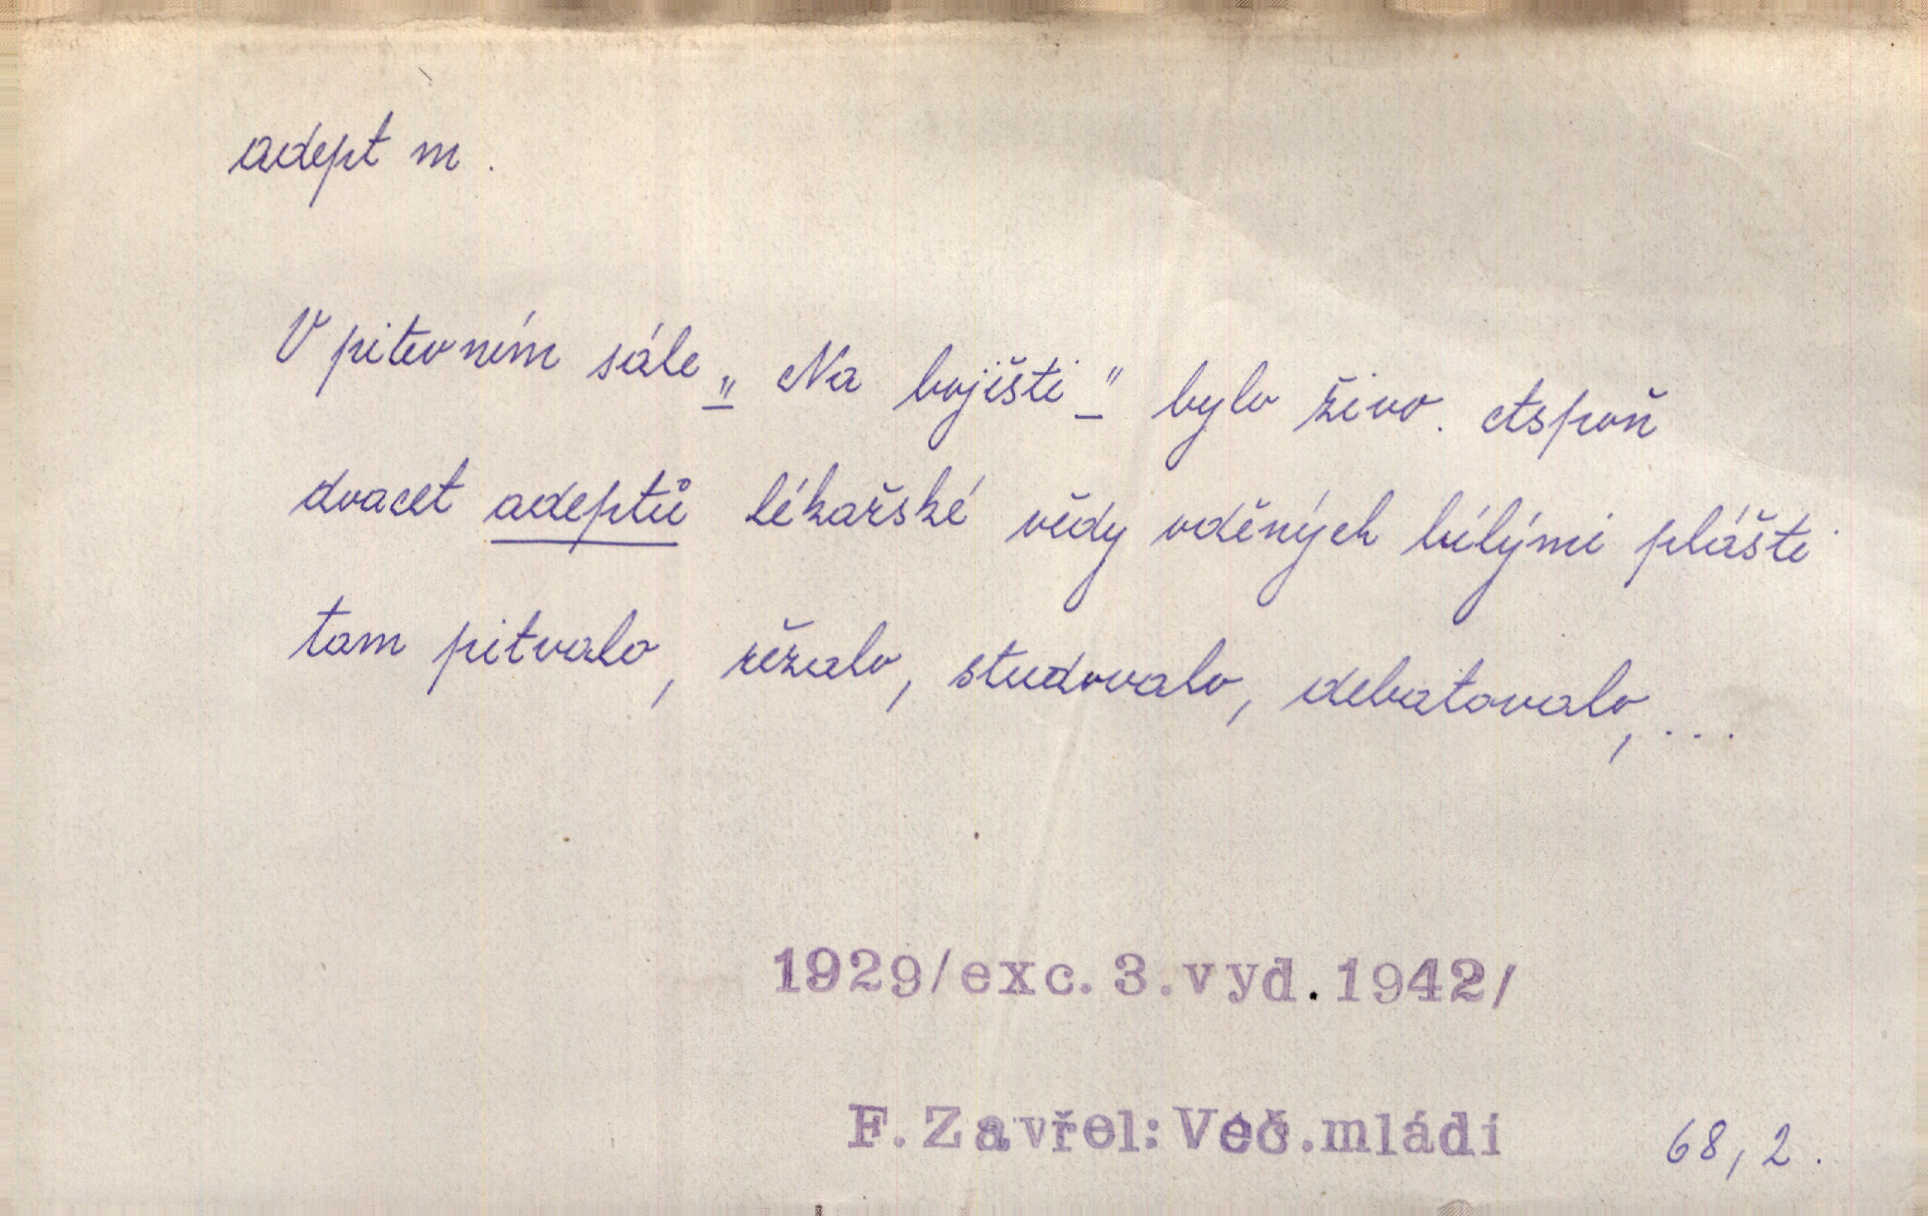 adept m.
V pitevním sále „Na bojišti“ bylo živo. Aspoň
dvacet adeptů lékařské vědy oděných bílými plášti
tam pitvalo, řezalo, studovalo, debatovalo, ...
1929/exc.3.vyd.1942/
F.Zavřel:Več.mládi
68,2.